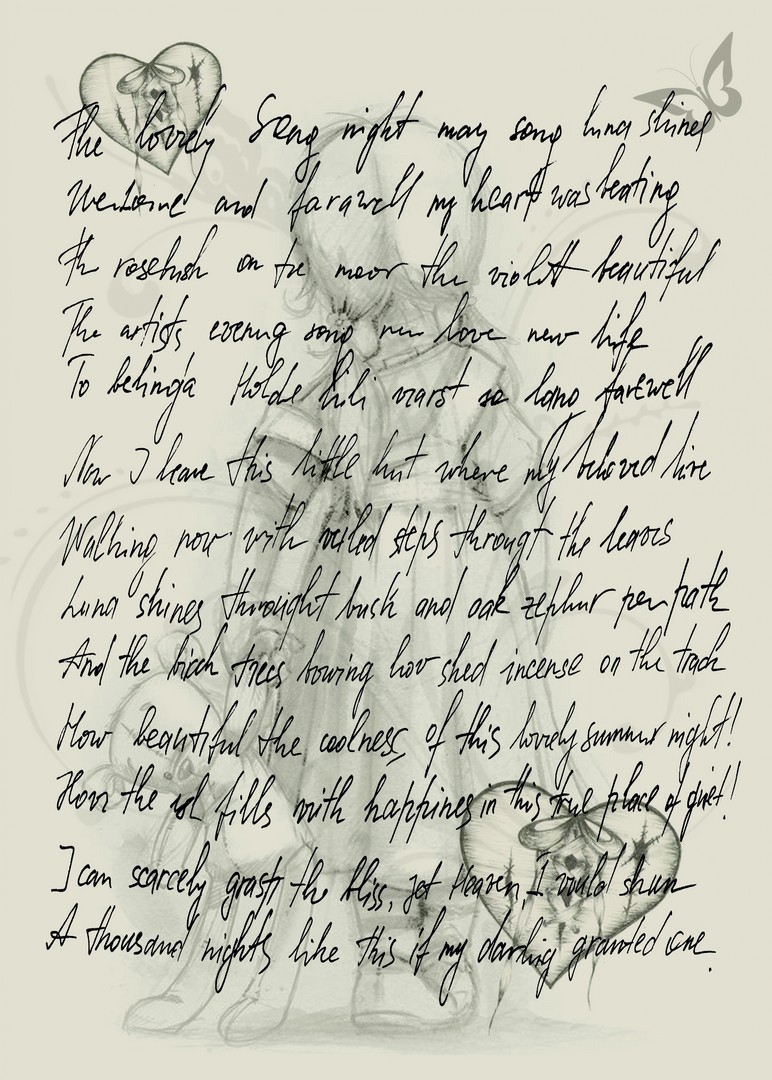 The lovely Song night may song luna shines
Welcome and farawell my heart was beating
Th rosebush on the moor the violett beautiful
The artists evening song new love new life
To belinda Holde Lili warst so lang farewell
Now I leave this little hut where my beloved live
Walking now with veiled steps througt the leaves
Luna shines throught bush and oak zephur per path
And the birch trees bowing low shed incense on the track
How beautiful the coolness, of this lovely summer night!
How the soul fills with happines in this true place of quiet!
I can scarcely grasp the bliss, yet Heaven, I would shun
A thousand nights like this if my darling granted one.